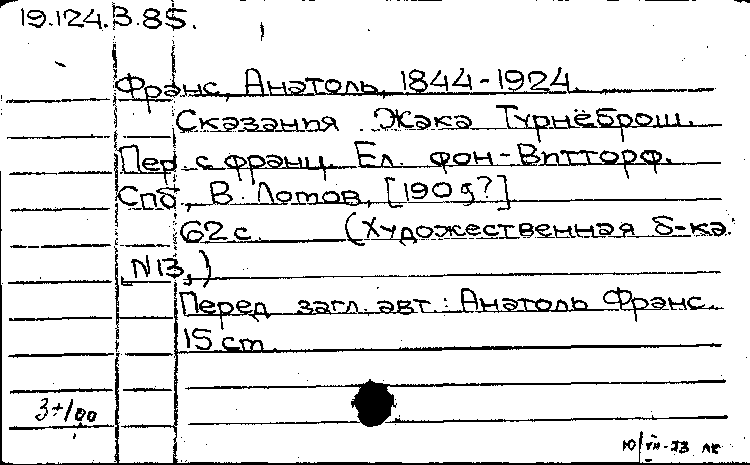 19.124.3.85.
Франс, Анатоль, 1844-1924.
Сказания Жака Турнёброш.
Пер. с франц. Ел. фон-Витторф.
Спб, В. Лотов, [1909?]
62 с. (Художественная б-ка.
N13,)
Перед загл. авт.: Анатоль Франс.
15 cm.
3+/00